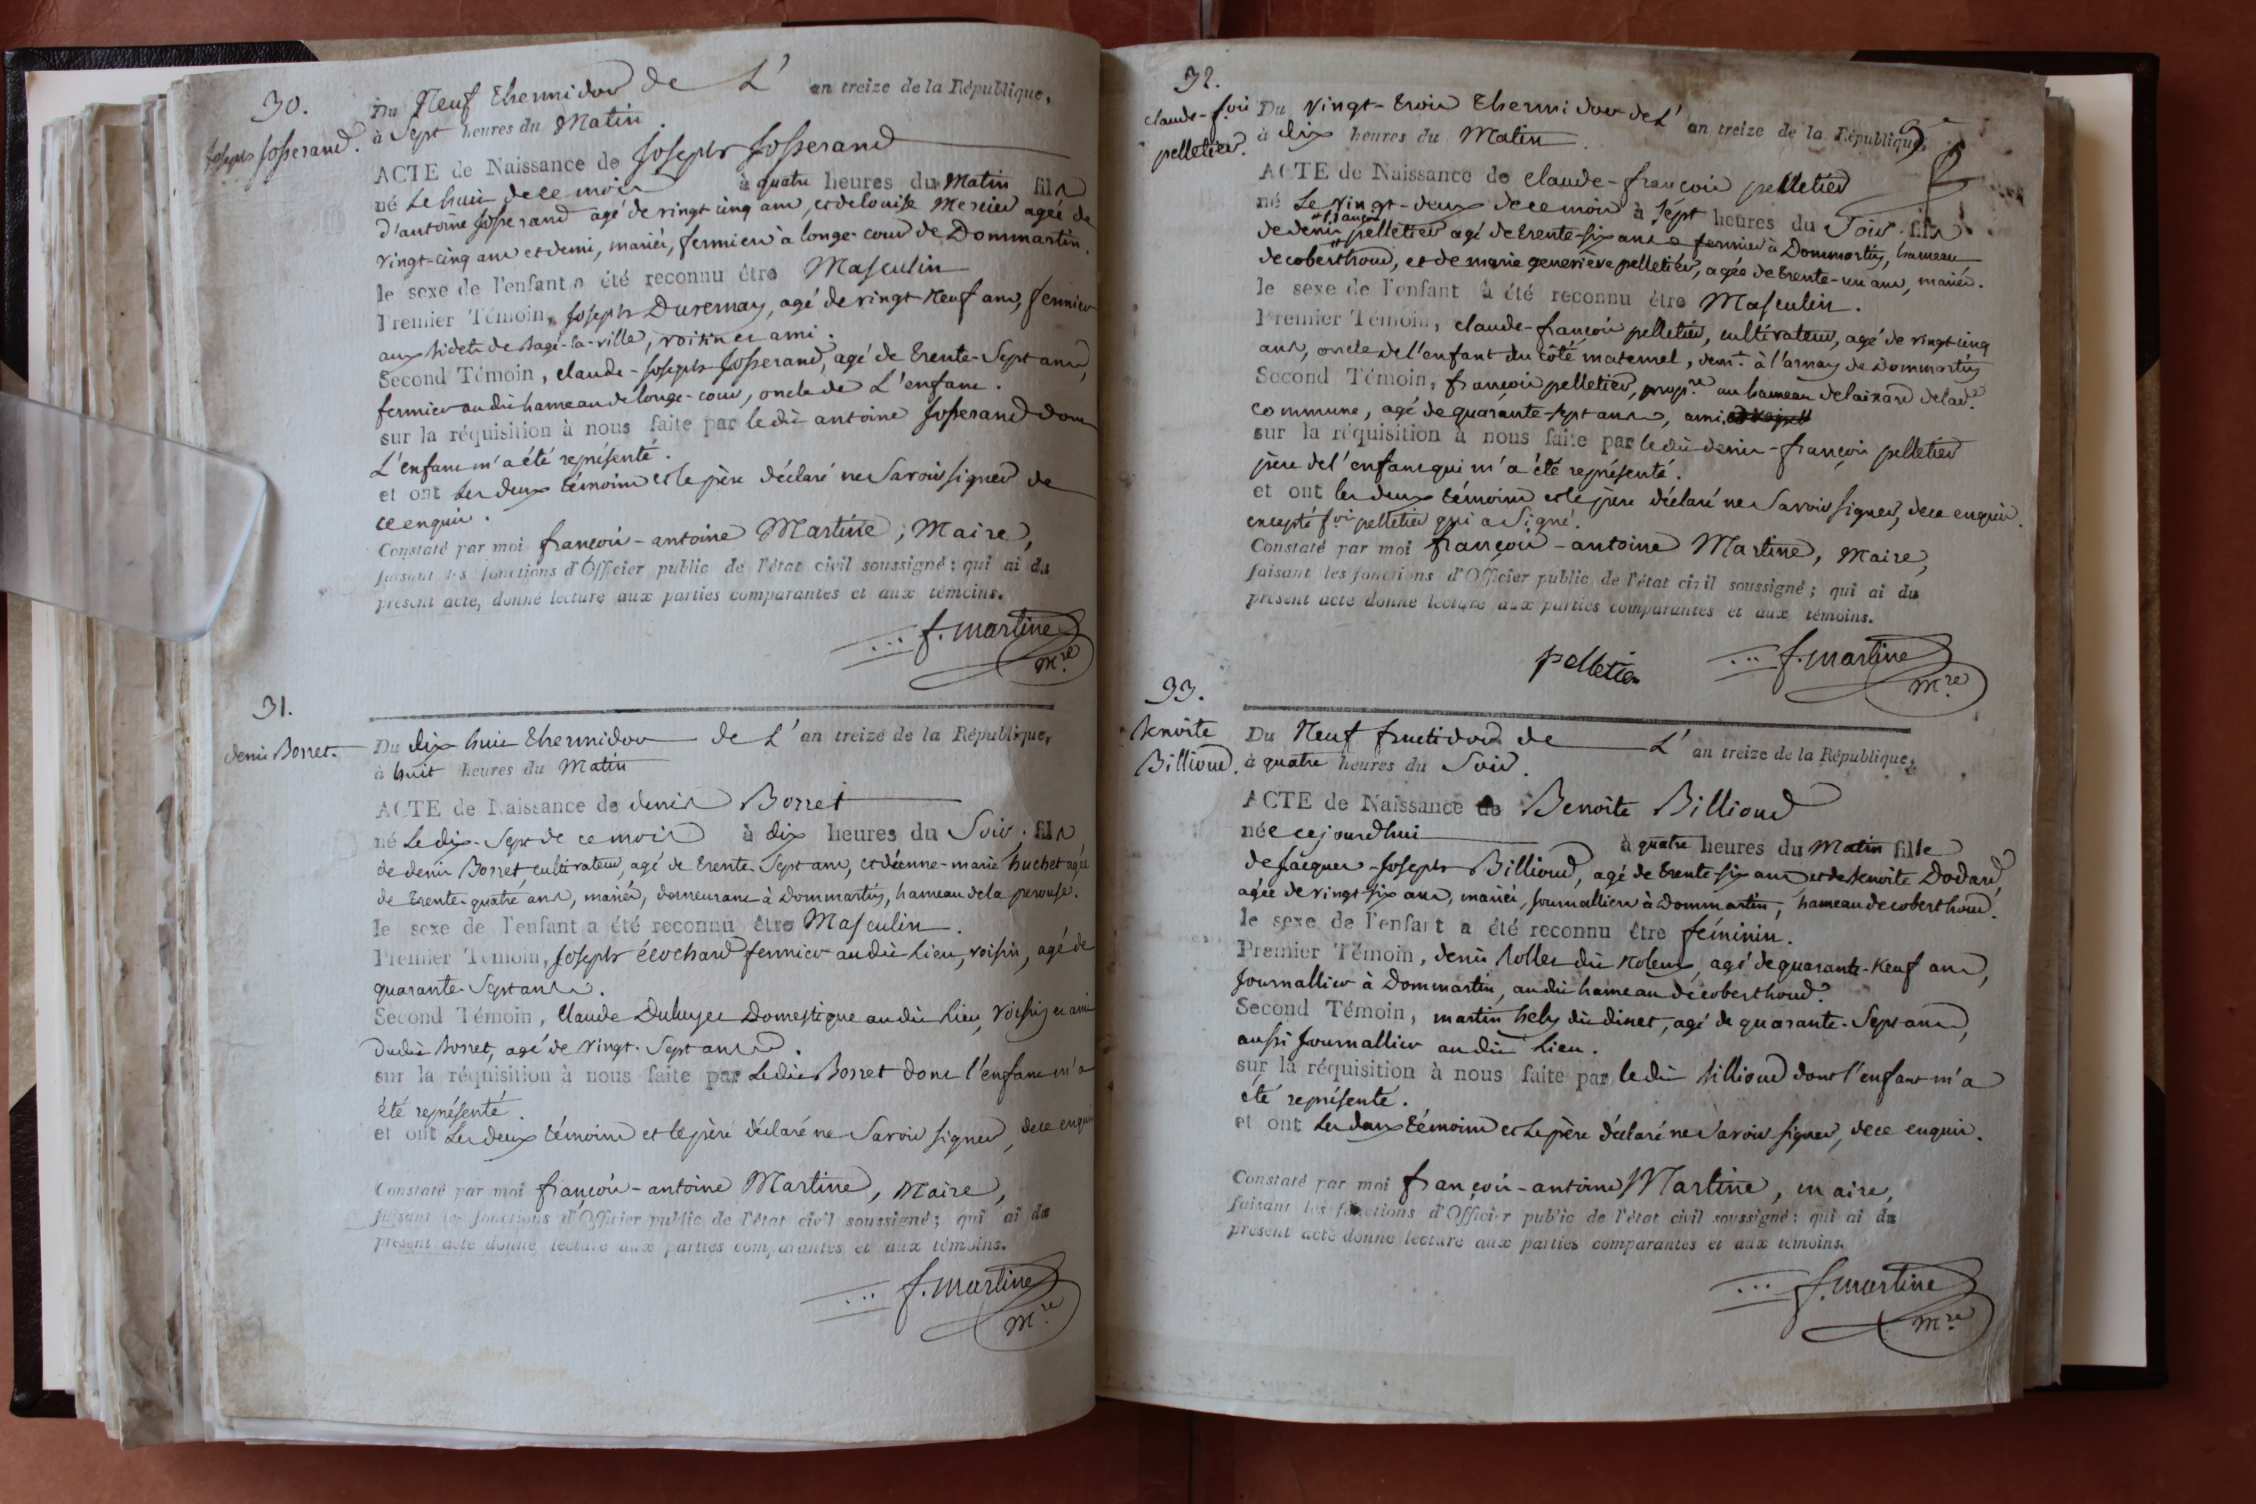 30.
Joseph Josserand.
Du Neuf thermidor de L' an treize de la République,
à Sept heures du Matin.
ACTE de Naissance de Joseph Josserand
né Le huit de ce mois à quatre heures du Matin fils
d'antoine Josserand agé de vingt cinq ans, et de louise Mercier agée de
vingt-cinq ans et demi, mariés, fermiers à longe-cour de Dommartin.
le sexe de l'enfant a été reconnu être Masculin
Premier Témoin, Joseph Duvernay, agé de vingt neuf ans, fermier
aux de Bagé-la-ville, voisin et ami.
Second Témoin, claude-Joseph Josserand, agé de trente-Sept ans,
fermier au dit hameau de longe-cour, oncle de L'enfant.
sur la réquisition à nous faite par le dit antoine Josserand dont
L'enfant m'a été représenté.
et ont les deux témoins et le père déclaré ne Savoir signer de
ce enquis.
Constaté par moi françois-antoine Martine, Maire,
faisant les fonctions d'Officier public de l'état civil soussigné; qui ai du
présent acte, donné lecture aux parties comparantes et aux témoins.
f. martine
mre
31.
denis Borret.
Du dix huit thermidor de L' an treize de la République,
à huit heures du Matin
ACTE de Naissance de denis Borret
né Le dix-Sept de ce mois à dix heures du Soir. fils
de denis Borret, cultivateur, agé de trente Sept ans, et d'éenne-marie huchet agée
de trente-quatre ans, mariés, demeurant à Dommartin, hameau de la perouse.
le sexe de l'enfant a été reconnu être Masculin.
Premier Témoin, Joseph écochard fermier au dit Lieu, voisin, agé de
quarante-Sept ans.
Second Témoin, Claude Domestique au dit Lieu, voisin et ami
du dit Borret, agé de vingt-Sept ans.
sur la réquisition à nous faite par Le dit Borret dont l'enfant m'a
été représenté.
et ont Les deux témoins et le père déclaré ne Savoir signer, de ce enquis
Constaté par moi françois-antoine Martine, Maire,
faisant les fonctions d'Officier public de l'état civil soussigné; qui ai du
présent acte donné lecture aux parties comparantes et aux témoins.
f. martine
mre
32.
claude-foix pelletier.
Du vingt-trois thermidor de L' an treize de la République,
à dix heures du Matin.
ACTE de Naissance de claude-françois pelletier
né Le vingt-deux de ce mois à Sépt heures du Soir. fils
de denis françois pelletier agé de trente-six ans fermier à Dommartin, hameau
de coberthoud, et de marie geneviève pelletier, agée de trente-un ans, mariés.
le sexe de l'enfant a été reconnu être Masculin.
Premier Témoin, claude-françois pelletier, cultivateur, agé de vingt cinq
ans, oncle de l'enfant du côté maternel, demt. à l'arnay de Dommartin
Second Témoin, françois pelletier, propre. au hameau de laizard de lade.
commune, agé de quarante-sept ans, ami
sur la réquisition à nous faite par le dit denis-françois pelletier
père de l'enfant qui m'a été représenté.
et ont les deux témoins et le père déclaré ne Savoir signer, de ce enquis.
excepté foix pelletier qui a Signé.
Constaté par moi françois-antoine Martine, Maire,
faisant les fonctions d'Officier public de l'état civil soussigné; qui ai du
présent acte donné lecture aux parties comparantes et aux témoins.
pelletier f. martine
mre
33.
Benoite Billioud.
Du Neuf fructidor de L' an treize de la République,
à quatre heures du Soir.
ACTE de Naissance de Benoite Billioud
née cejourd'hui à quatre heures du Matin fille
de Jacques-Joseph Billioud, agé de trente-six ans et de benoite Dodard,
agée de vingt-six ans, mariés, journalliers à Dommartin, hameau de coberthoud.
le sexe de l'enfant a été reconnu être féminin.
Premier Témoin, denis dit agé de quarante-Neuf ans,
Journallier à Dommartin, au dit hameau de coberthoud.
Second Témoin, martin hely dit dinet, agé de quarante-Sept ans,
aussi Journallier au dit Lieu.
sur la réquisition à nous faite par le dit billioud dont l'enfant m'a
été représenté.
et ont Les deux témoins et Le père déclaré ne Savoir signer, de ce enquis.
Constaté par moi françois-antoine Martine, maire,
faisant les fonctions d'Officier public de l'état civil soussigné; qui ai du
présent acte donné lecture aux parties comparantes et aux témoins.
f. martine
mre